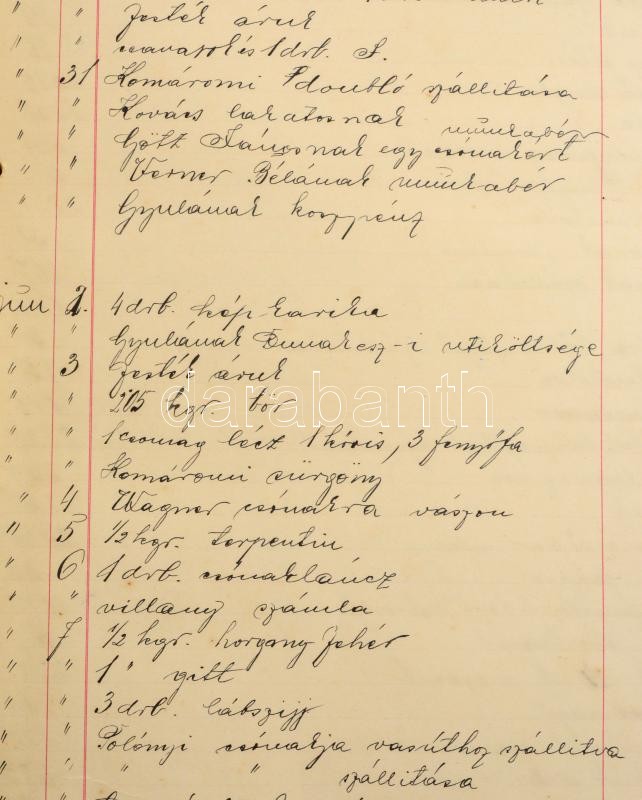 festék áruk
csavarok és 1 drb. S.
" " 31 Komáromi doubló szállitása
" " Kovács lakatosnak munkabér
" " Gött Jánosnak egy csónakért
" " Verner Bélának munkabér
" " Gyulának koszpénz
jun 2. 4 drb. kép karika
" " Gyulának Dunakesz-i utiköltsége
" 3 festék áruk
" " 205 kgr. tör
" " 1 csomag lécz 1 kőris, 3 fenyőfa
" " Komáromi sürgöny
" 4 Wagner csónakra vászon
" 5 1/2 kgr. terpentin
" 6 1 drb. csónakláncz
" " villany számla
" 7 1/2 kgr. horgany fehér
" " 1 " gitt
" " 3 drb. lábszijj
" " Polónyi csónakja vasúthoz szállitva
" " " " szállitása
darabanth